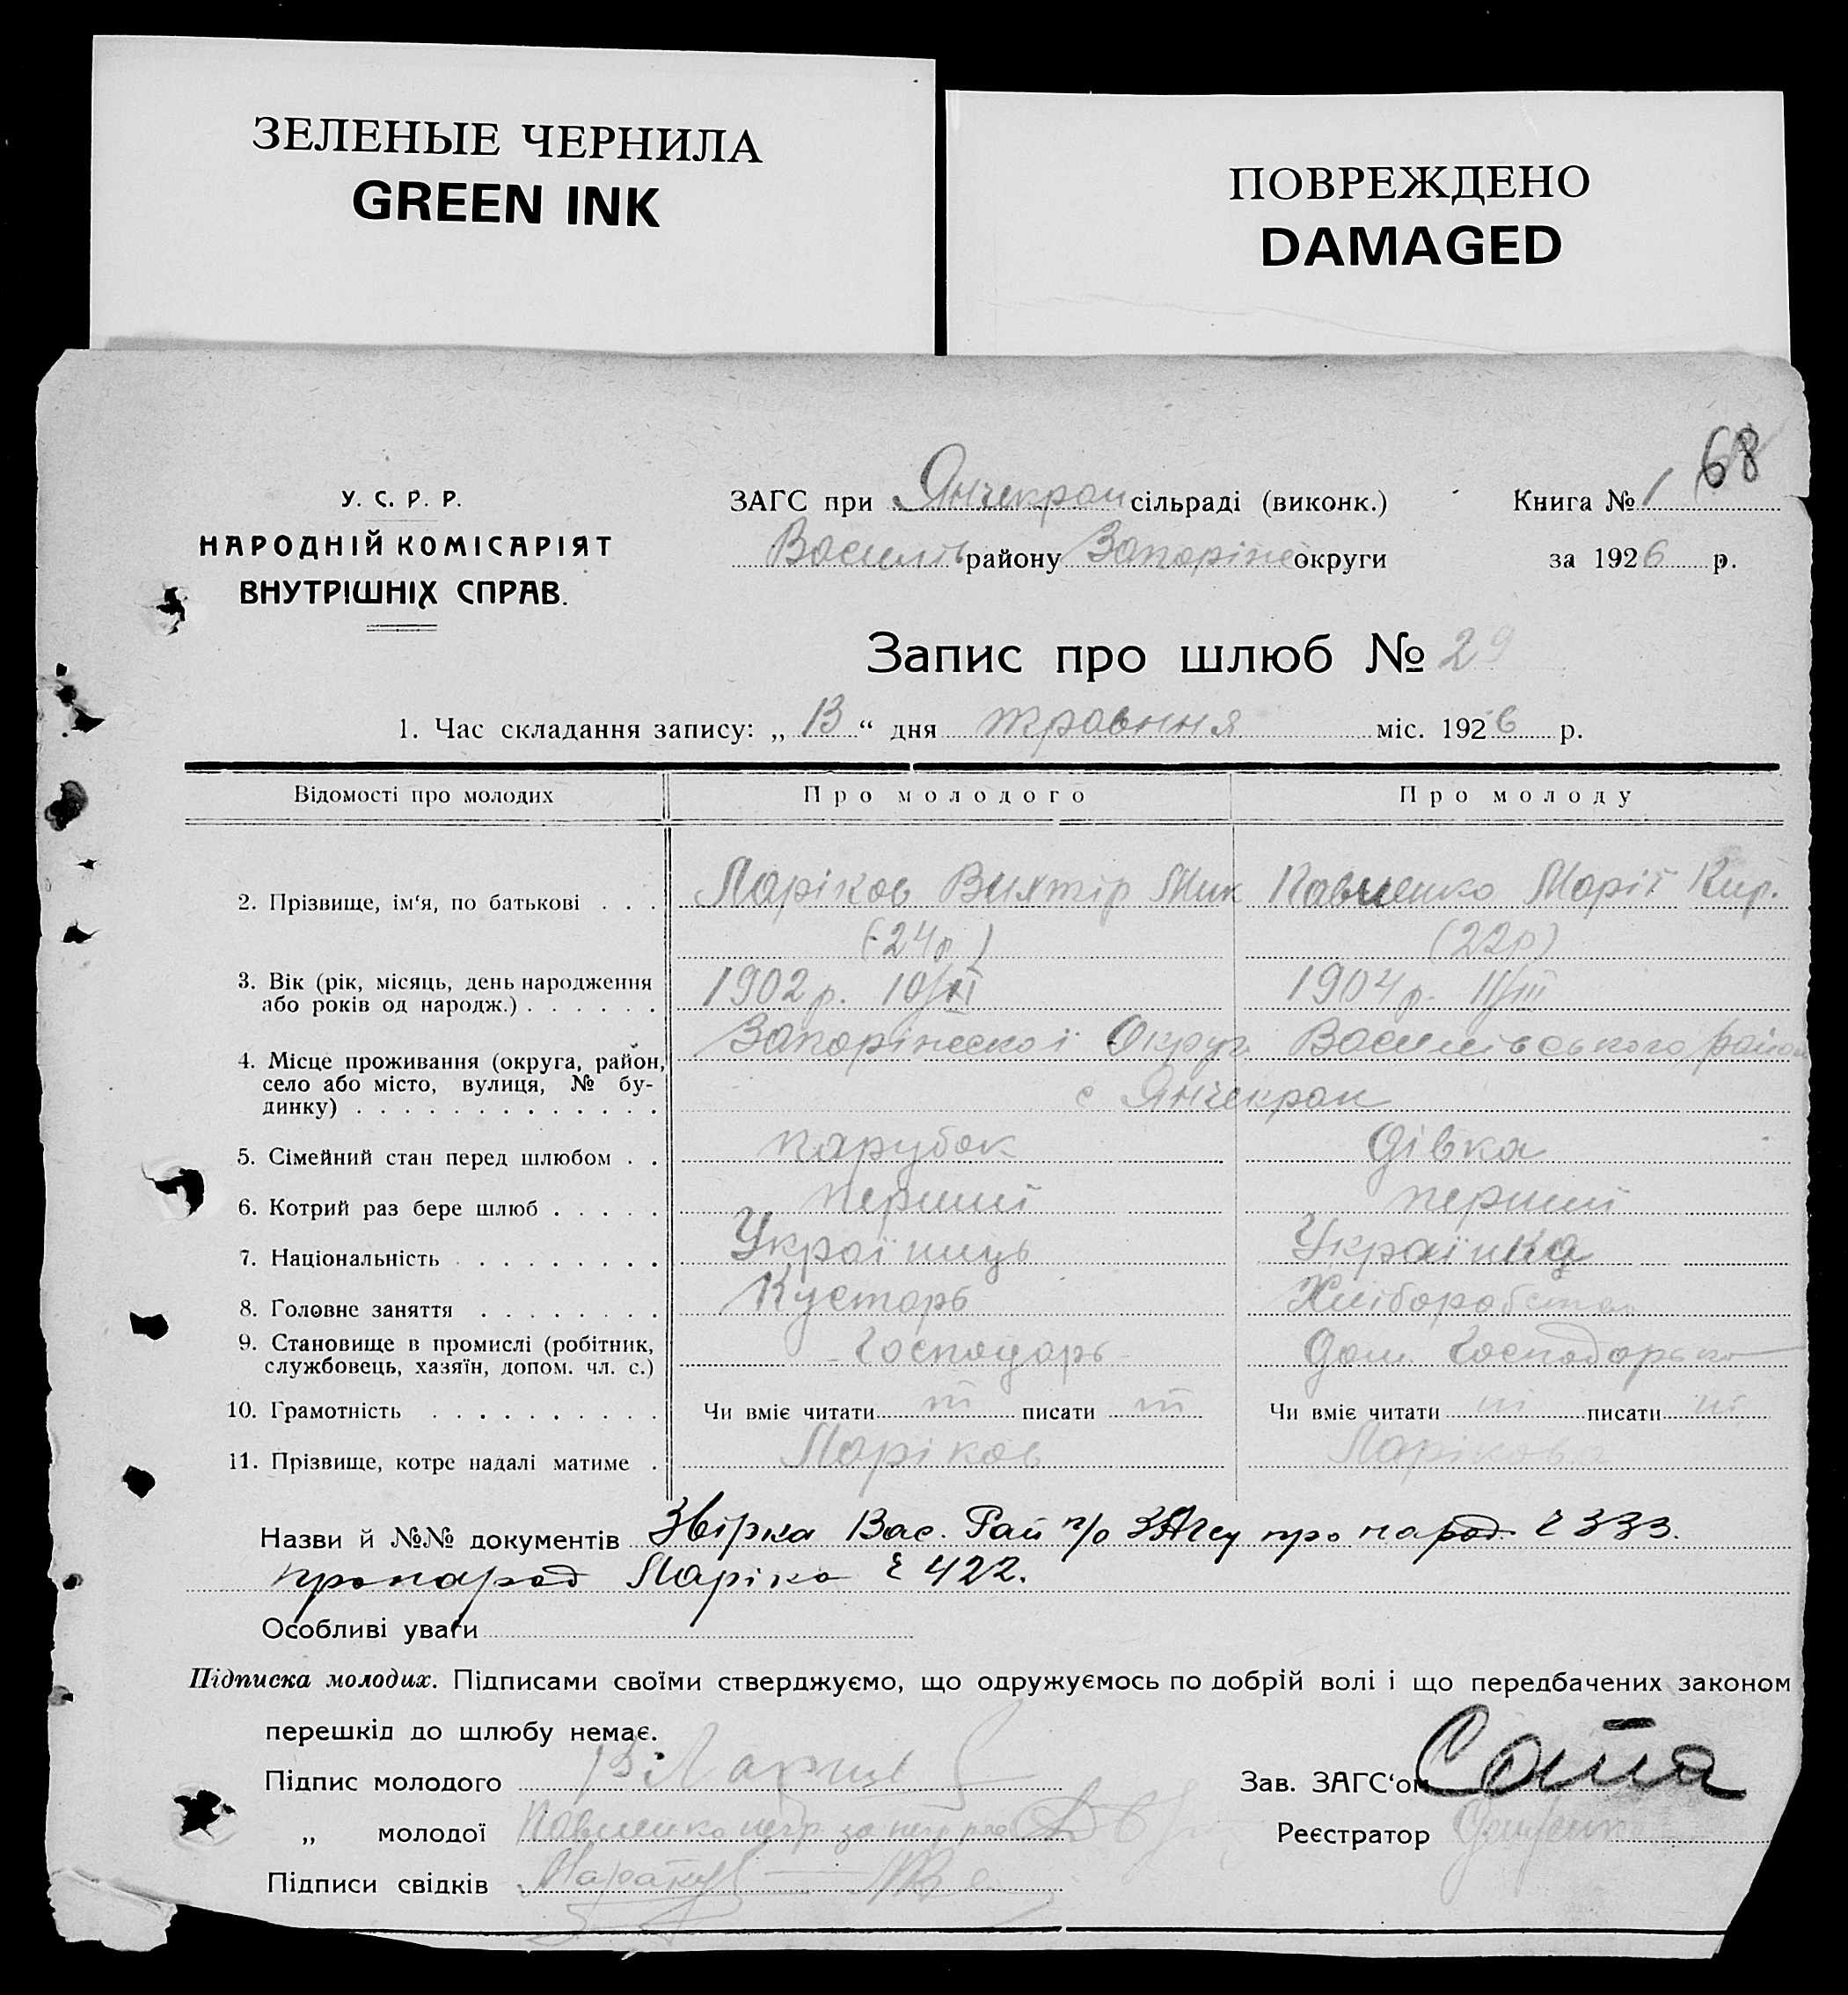 ЗЕЛЕНЫЕ ЧЕРНИЛА
GREEN INK
ПОВРЕЖДЕНО
DAMAGED
68
У. С. Р. Р.
НАРОДНІЙ КОМІСАРІЯТ
ВНУТРІШНІХ СПРАВ.
ЗАГС при Янчекрак сільраді (виконк.) Книга № 1
Василів району Запоріже округи за 1926 р.
Запис про шлюб № 29
1. Час складання запису: „ 13 “ дня травння міс. 1926 р.
Відомості про молодих Про молодого Про молоду
2. Прізвище, ім‘я, по батькові . . . Ларіков Вихтір Мик Павленко Марії Кир.
(24р.) (22р)
3. Вік (рік, місяць, день народження 1902 р. 10/XI 1904 р. 11/III
або років од народж.) . . . . . .
Запоріжескої Округ. Василівського район
4. Місце проживання (округа, район,
село або місто, вулиця, № бу- с Янчекрак
динку) . . . . . . . . . . . . .
5. Сімейний стан перед шлюбом . . парубок дівка
6. Котрий раз бере шлюб . . . . . перший перший
7. Національність . . . . . . . . . Українць Українка
8. Головне заняття . . . . . . . . Кустарь Хліборобство
9. Становище в промислі (робітник, - Господарь - дом. Господарько
службовець, хазяїн, допом. чл. с.)
10. Грамотність . . . . . . . . . . Чи вміє читати ні писати ні Чи вміє читати ні писати ні
11. Прізвище, котре надалі матиме . Ларіков Ларікова
Назви й №№ документів Звірка Вас. Рай п/о ЗАгсу про народ. č 333.
про народ Ларіка č 422.
Особливі уваги
Підписка молодих. Підписами своїми стверджуємо, що одружуємось по добрій волі і що передбачених законом
перешкід до шлюбу немає.
Підпис молодого В Ларик Зав. ЗАГС‘ом
„ молодої Павленко негр. за негр Реєстратор
Підписи свідків